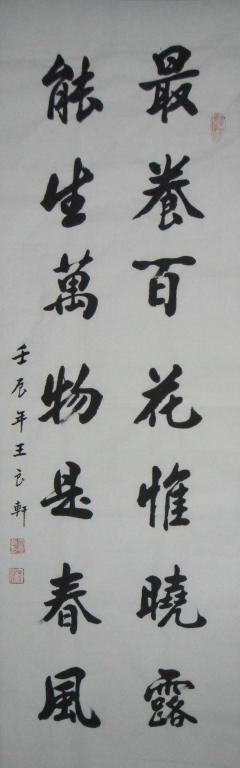 最养百花惟曉露
能生萬物是春風
壬辰年王良軒